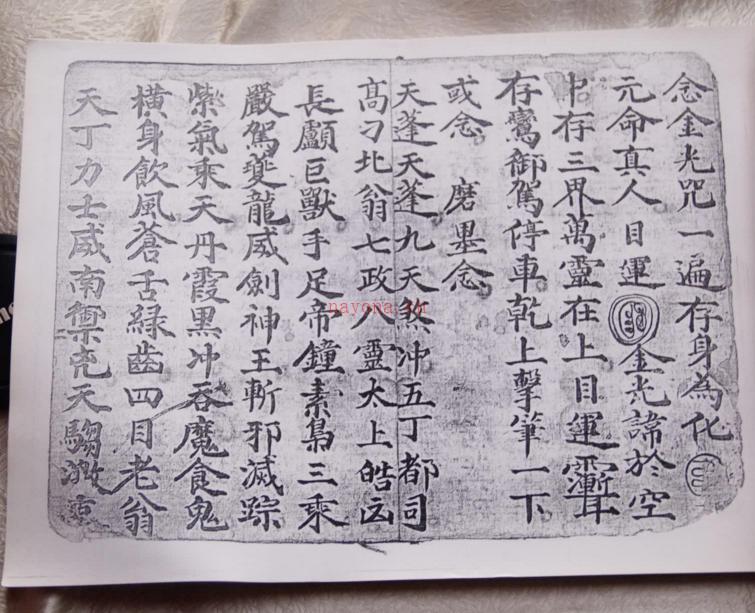 念金光咒一遍存身為化
元命真人目運金光諱於空
中存三界萬靈在上目運聻
存鸞御駕停車乾上擊筆一下
或念 磨墨念
天蓬天蓬九天煞冲五丁都司
高刁北翁七政八灵太上皓凶
長顱巨獸手足帝鐘素梟三乘
嚴駕夔龍威劍神王斬邪滅踪
紫氣乘天丹霞黑冲吞魔食鬼
橫身飲風蒼舌緑齒四目老翁
天丁力士威南禦克天騶激